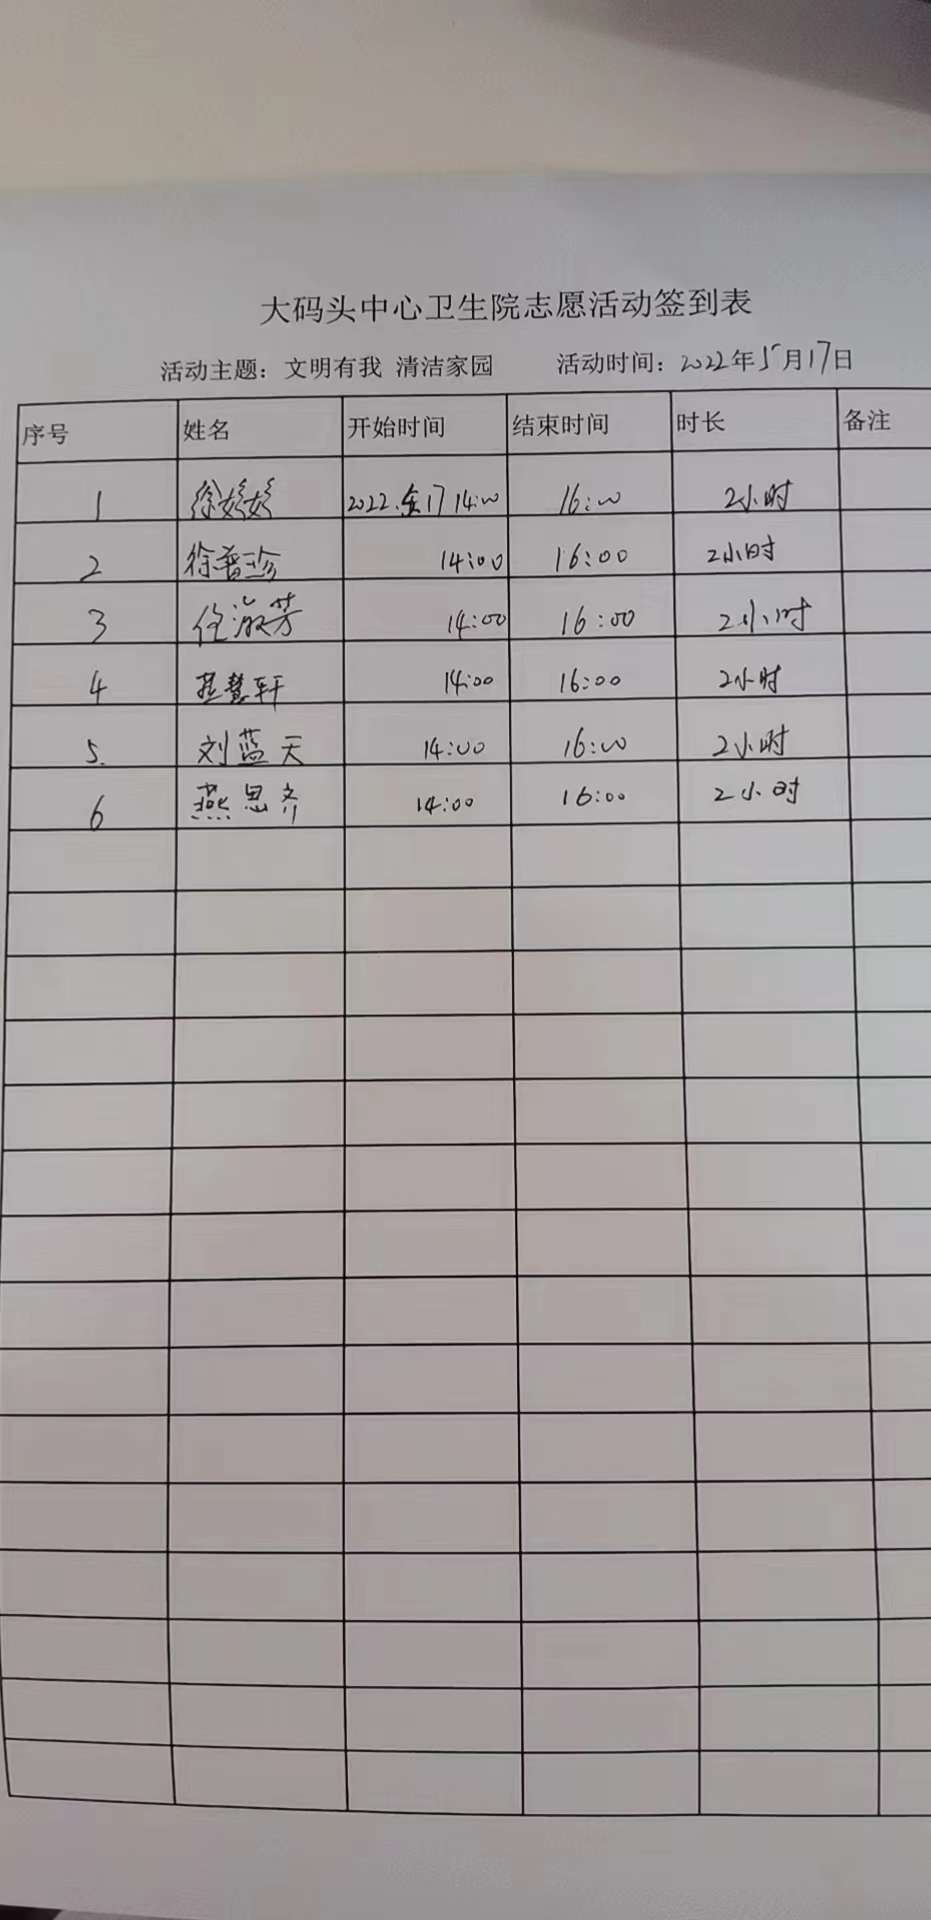 大码头中心卫生院志愿活动签到表
活动主题：文明有我 清洁家园 活动时间：2022年5月17日
序号 姓名 开始时间 结束时间 时长 备注
1 徐婷婷 2022. 17 14:00 16:00 2小时
2 徐普珍 14:00 16:00 2小时
3 任淑芳 14:00 16:00 2小时
4 慧轩 14:00 16:00 2小时
5. 刘蓝天 14:00 16:00 2小时
6 燕思齐 14:00 16:00 2小时